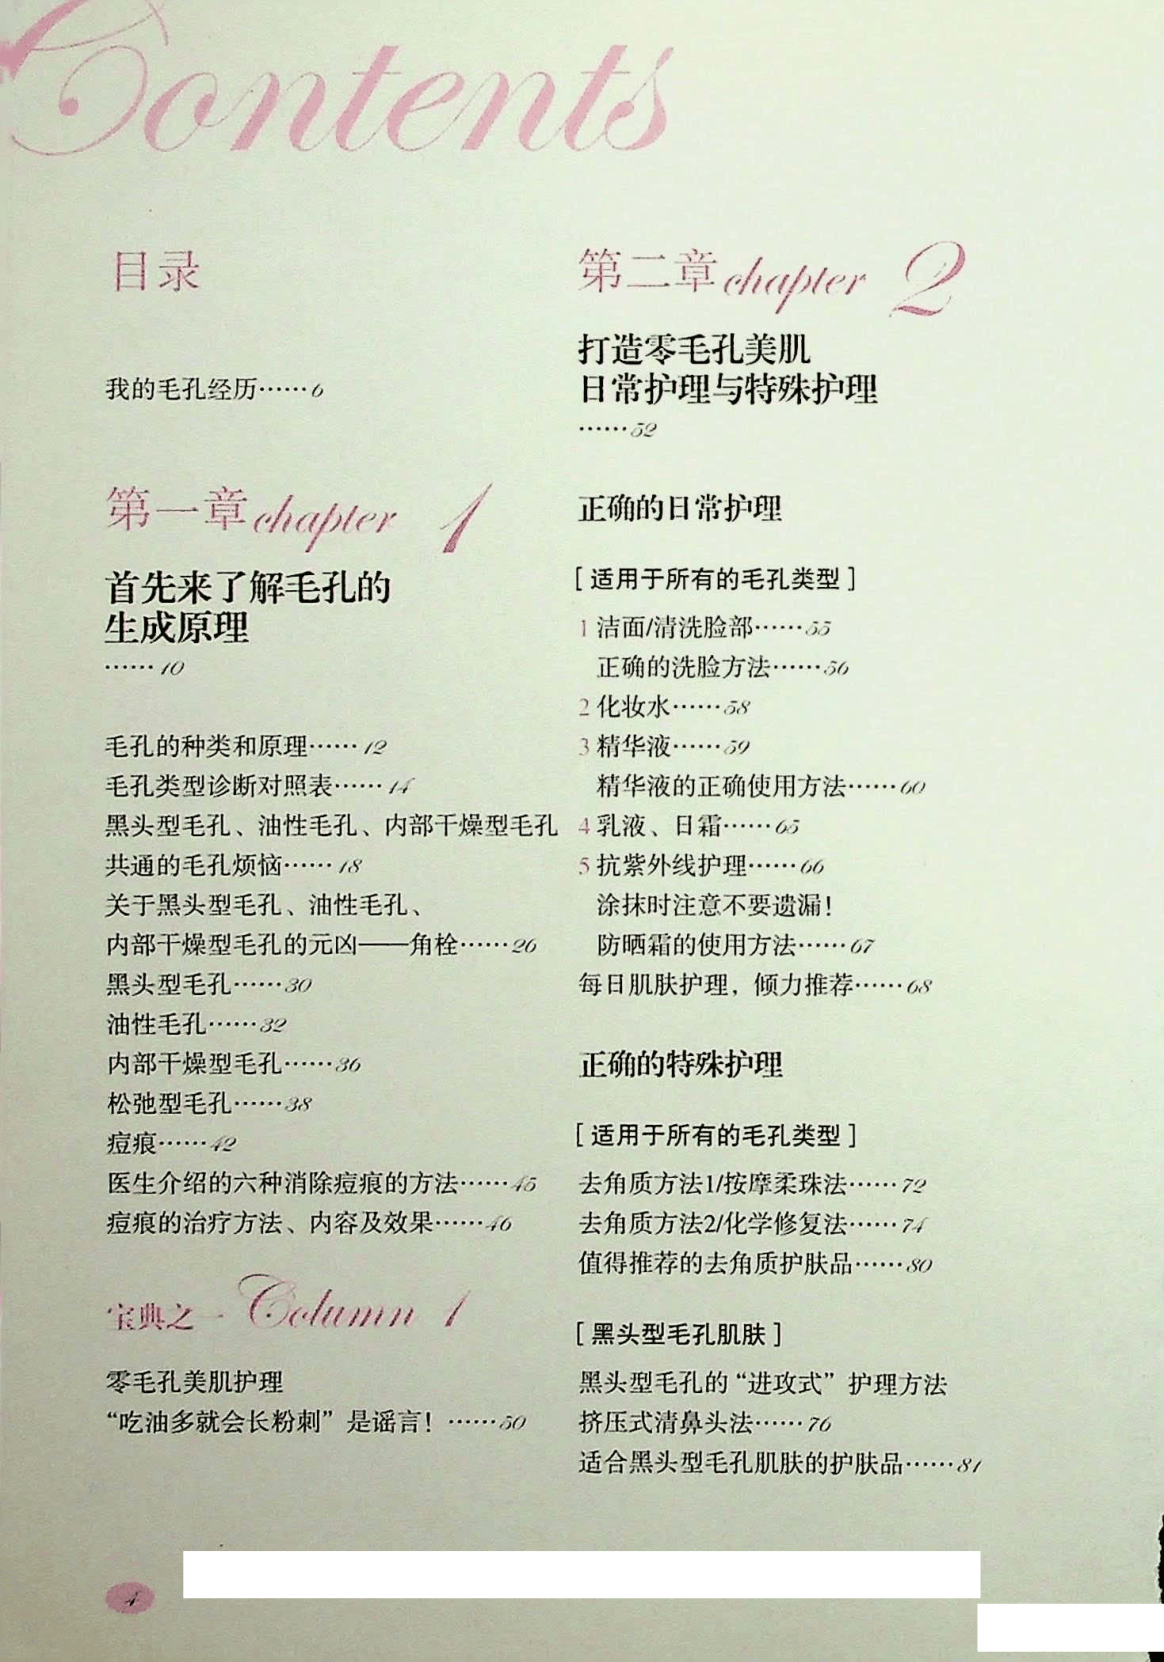 Contents
目录
我的毛孔经历……6
第一章 chapter 1
首先来了解毛孔的
生成原理
……10
毛孔的种类和原理……12
毛孔类型诊断对照表……14
黑头型毛孔、油性毛孔、内部干燥型毛孔
共通的毛孔烦恼……18
关于黑头型毛孔、油性毛孔、
内部干燥型毛孔的元凶——角栓……26
黑头型毛孔……30
油性毛孔……32
内部干燥型毛孔……36
松弛型毛孔……38
痘痕……42
医生介绍的六种消除痘痕的方法……45
痘痕的治疗方法、内容及效果……46
宝典之一 Column 1
零毛孔美肌护理
“吃油多就会长粉刺”是谣言！……50
第二章 chapter 2
打造零毛孔美肌
日常护理与特殊护理
……52
正确的日常护理
[ 适用于所有的毛孔类型 ]
1 洁面/清洗脸部……55
正确的洗脸方法……56
2 化妆水……58
3 精华液……59
精华液的正确使用方法……60
4 乳液、日霜……65
5 抗紫外线护理……66
涂抹时注意不要遗漏！
防晒霜的使用方法……67
每日肌肤护理，倾力推荐……68
正确的特殊护理
[ 适用于所有的毛孔类型 ]
去角质方法1/按摩柔珠法……72
去角质方法2/化学修复法……74
值得推荐的去角质护肤品……80
[ 黑头型毛孔肌肤 ]
黑头型毛孔的“进攻式”护理方法
挤压式清鼻头法……76
适合黑头型毛孔肌肤的护肤品……81
4